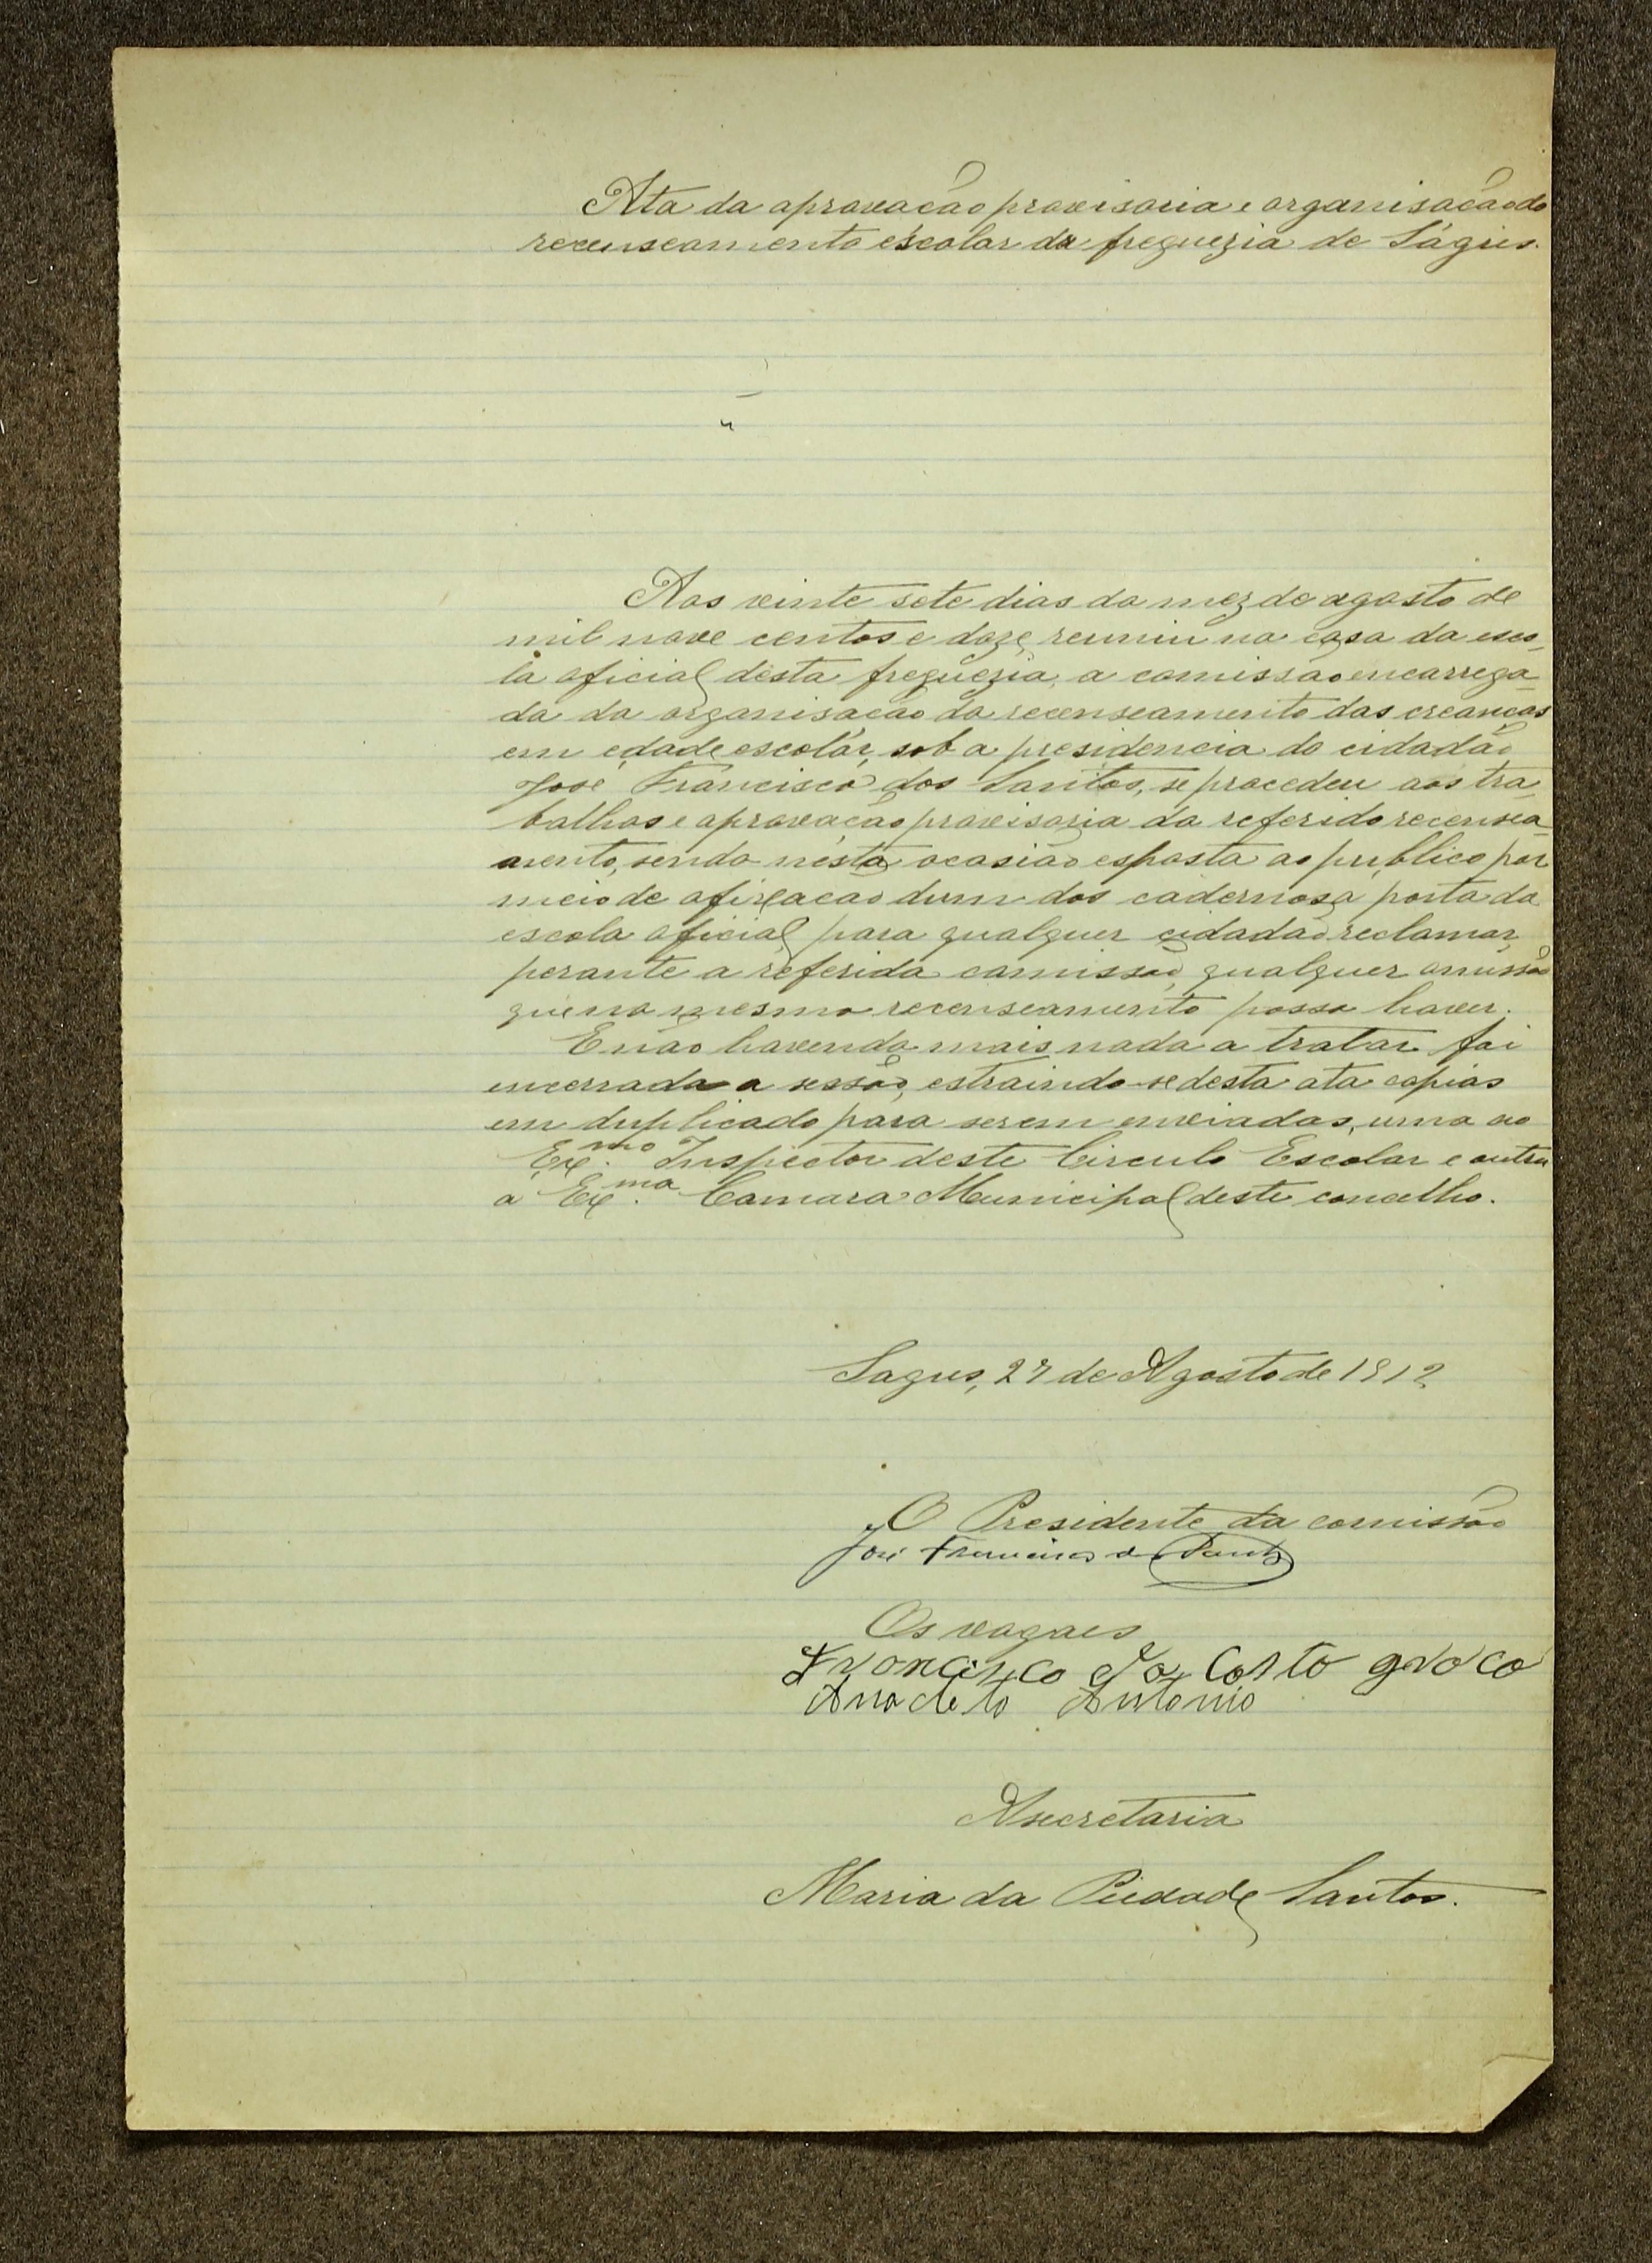 Ata da aprovação provisoria e organisação do
recenseamento escolar da freguezia de Ságres.
Aos vinte sete dias do mez de agosto de
mil nove centos e doze, reuniu na casa da esco-
la oficial desta freguezia, a comissão encarrega-
da da organisação do recenseamento das creanças
em edade escolár, sob a presidencia do cidadão
José Francisco dos Santos, se procedeu aos tra-
balhos e aprovação provisoria do referido recensea-
mento, sendo nésta ocasião esposta ao publico por
meio de afixação dum dos cadernos a porta da
escola oficial, para qualquer cidadão reclamar,
perante a referida comissão, qualquer omissão
que no mesmo recenseamento possa haver.
E não havendo mais nada a tratar foi
encerrada a sessão, estraindo-se desta ata copias
em duplicado para serem enviadas, uma ao
Ex.mo Inspector deste Circulo Escolar e outra
a Ex.ma Camara Municipal deste concelho.
Sagres, 27 de Agosto de 1912
O Presidente da comissão
José Francisco dos Santos
Os vogaes
Francisco da Costo
Anacleto Antonio
A secretaria
Maria da Piedade Santos.